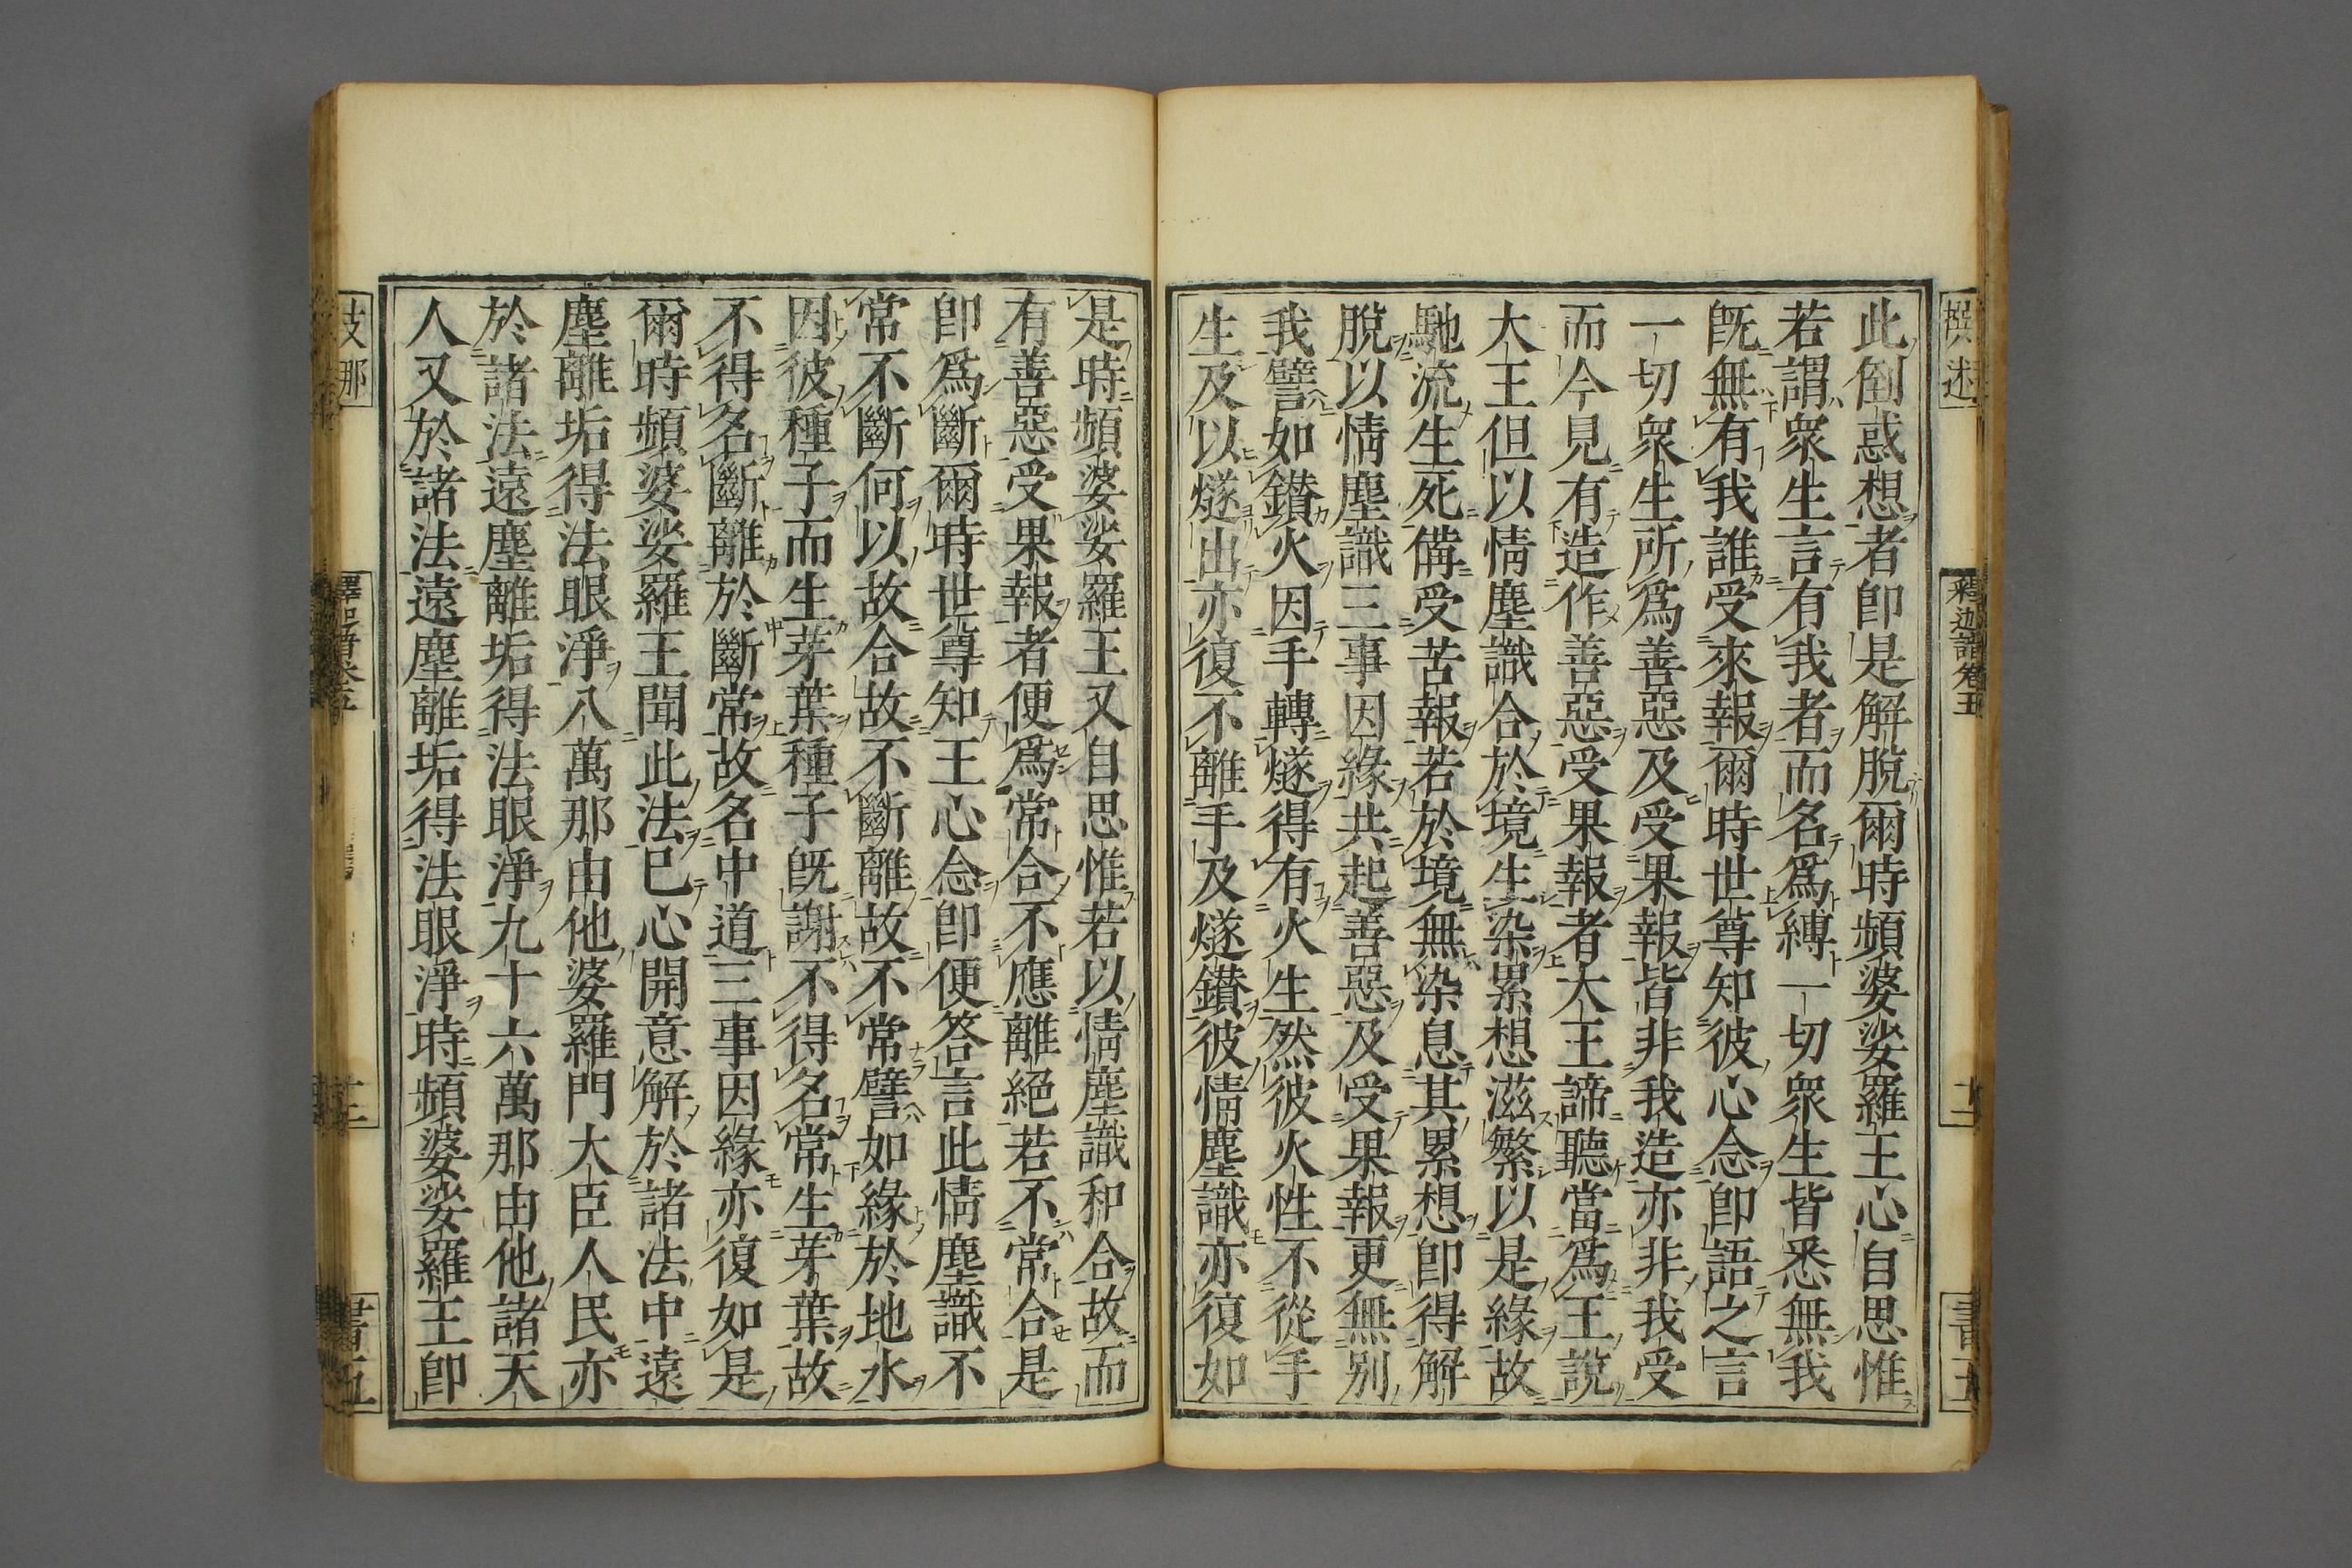 此倒惑想者卽是解脫爾時頻婆娑羅王心自思惟
若謂衆生言有我者而名爲縛一切衆生皆悉無我
旣無有我誰受來報爾時世尊知彼心念卽語之言
一切衆生所爲善惡及受果報皆非我造亦非我受
而今見有造作善惡受果報者大王諦聽當爲王說
大王但以情塵識合於境生染累想滋繁以是緣故
馳流生死備受苦報若於境無染息其累想卽得解
脫以情塵識三事因緣共起善惡及受果報更無別
我譬如鑚火因手轉燧得有火生然彼火性不從手
生及以燧出亦復不離手及燧鑚彼情塵識亦復如
是時頻婆娑羅王又自思惟若以情塵識和合故而
有善惡受果報者便爲常合不應離絕若不常合是
卽爲斷爾時世尊知王心念卽便答言此情塵識不
常不斷何以故合故不斷離故不常譬如緣於地水
因彼種子而生芽葉種子旣謝不得名常生芽葉故
不得名斷離於斷常故名中道三事因緣亦復如是
爾時頻婆娑羅王聞此法已心開意解於諸法中遠
塵離垢得法眼淨八萬那由他婆羅門大臣人民亦
於諸法遠塵離垢得法眼淨九十六萬那由他諸天
人又於諸法遠塵離垢得法眼淨時頻婆娑羅王卽
撰述
釋迦譜卷五
支那